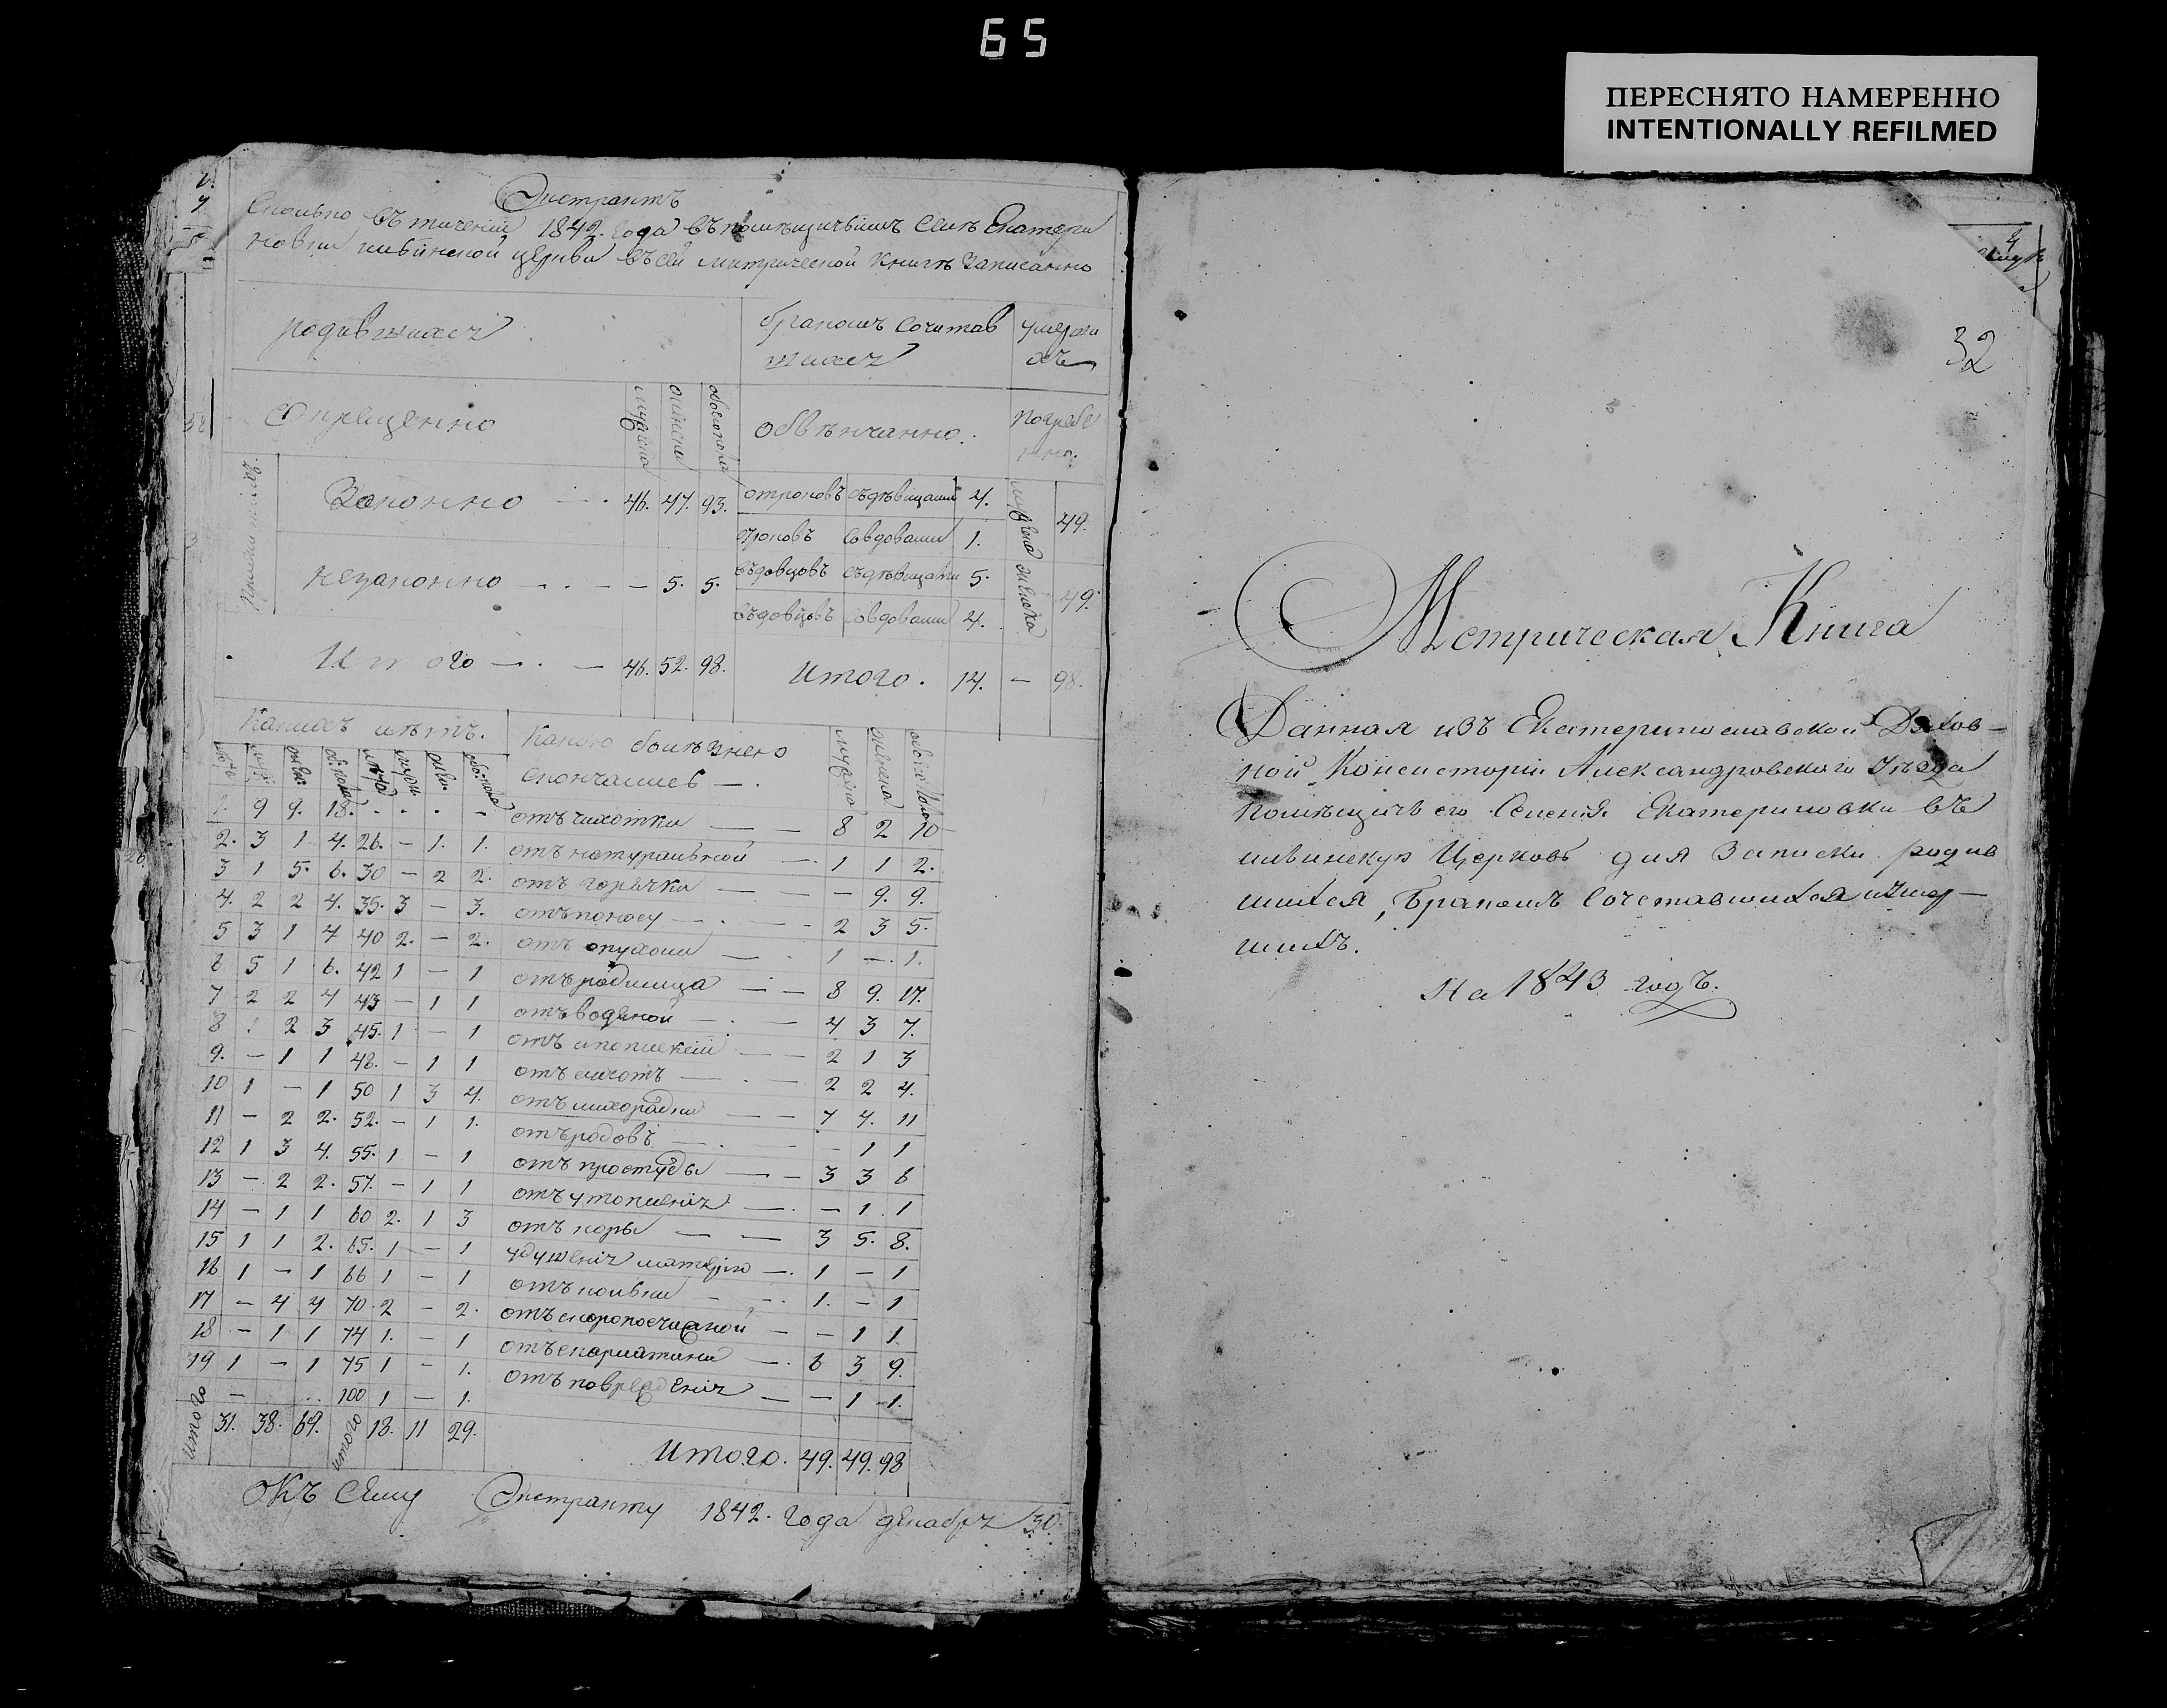 65
ПЕРЕСНЯТО НАМЕРЕННО
INTENTIONALLY REFILMED
Экстрактъ
Сколько въ течении 1842. года въ помѣщичьимъ Селѣ Екатери
новки церкви въ сей митрической книгѣ записанно
родившихся
бракомъ сочитав
шихся
умерши
хъ
Окрещенно
мужеска
женска
обоего пола
обвѣнчанно.
погребе
нно.
Законно — . 46. 47. 93.
незаконно — . . — — 5. 5.
Итого — . — 46. 52. 98.
отроковъ съдѣвицами 4.
отроковъ совдовами 1.
въдовцовъ съдѣвицами 5.
въдовцовъ совдовами 4.
Итого. 14. — 98.
мужеска 49.
женска 49.
Какихъ лѣтъ.
1. 9 9. 18. . . . —
2. 3 1 4. 26. — 1. 1.
3 1 5. 6. 30 — 2 2.
4. 2 2 4. 35. 3 — 3.
5 3 1 4 40 2. — 2.
6 5 1 6. 42 1 — 1
7 2 2 4 43 — 1 1
8 1 2 3 45. 1 — 1
9. — 1 1 48. — 1 1
10 1 — 1 50 1 3 4.
11 — 2 2. 52. — 1 1.
12 1 3 4. 55. 1 — 1
13 — 2 2. 57. — 1 1
14 — 1 1 60 2. 1 3
15 1 1 2. 65. 1 — 1
16 1 — 1 66 1 — 1
17 — 4 4 70. 2 — 2.
18 — 1 1 74 1. — 1
19 1 — 1 75 1 — 1.
— . . . 100 1 — 1.
итого 31. 38. 69. итого 18. 11 29.
Какою болѣзнею
скончались — .
мужеска
женска
обоего пола
отъ чихотки — — 8 2 10
отъ натуральной — . 1 1 2.
отъ горячки — — — 9. 9.
отъ поносу — . . — 2 3 5.
отъ опухоли — . 1 — . 1.
отъ родимца — — 8 9. 17.
отъ водяной — . — 4 3 7.
отъ апоплексіи — — 2 1 3
отъ — . — 2 2 4.
отъ лихорадки — — 7 4. 11
отъ родовъ — . — — 1 1
отъ простуды — — 3 3 6
отъ утопленія — . — 1. 1
отъ коры — — 3 5. 8.
удушенія матерію — . 1 — 1
отъ — — . 1. — 1
отъ скоропостижной — — 1 1.
отъ скарлатины — . 6 3 9.
отъ поврежденія — — 1 1.
Итого. 49. 49. 98
Къ сему Экстракту 1842. года декабря 30.
32
Метрическая Книга
Данная изъ Екатеринославской Духов-
ной Консисторіи Александровскаго Уѣзда
помѣщичьего Селенія Екатериновки въ
Церковь для Записки родив
шихся, Бракомъ Сочетавшихся и Умер-
шихъ.
На 1843 годъ.